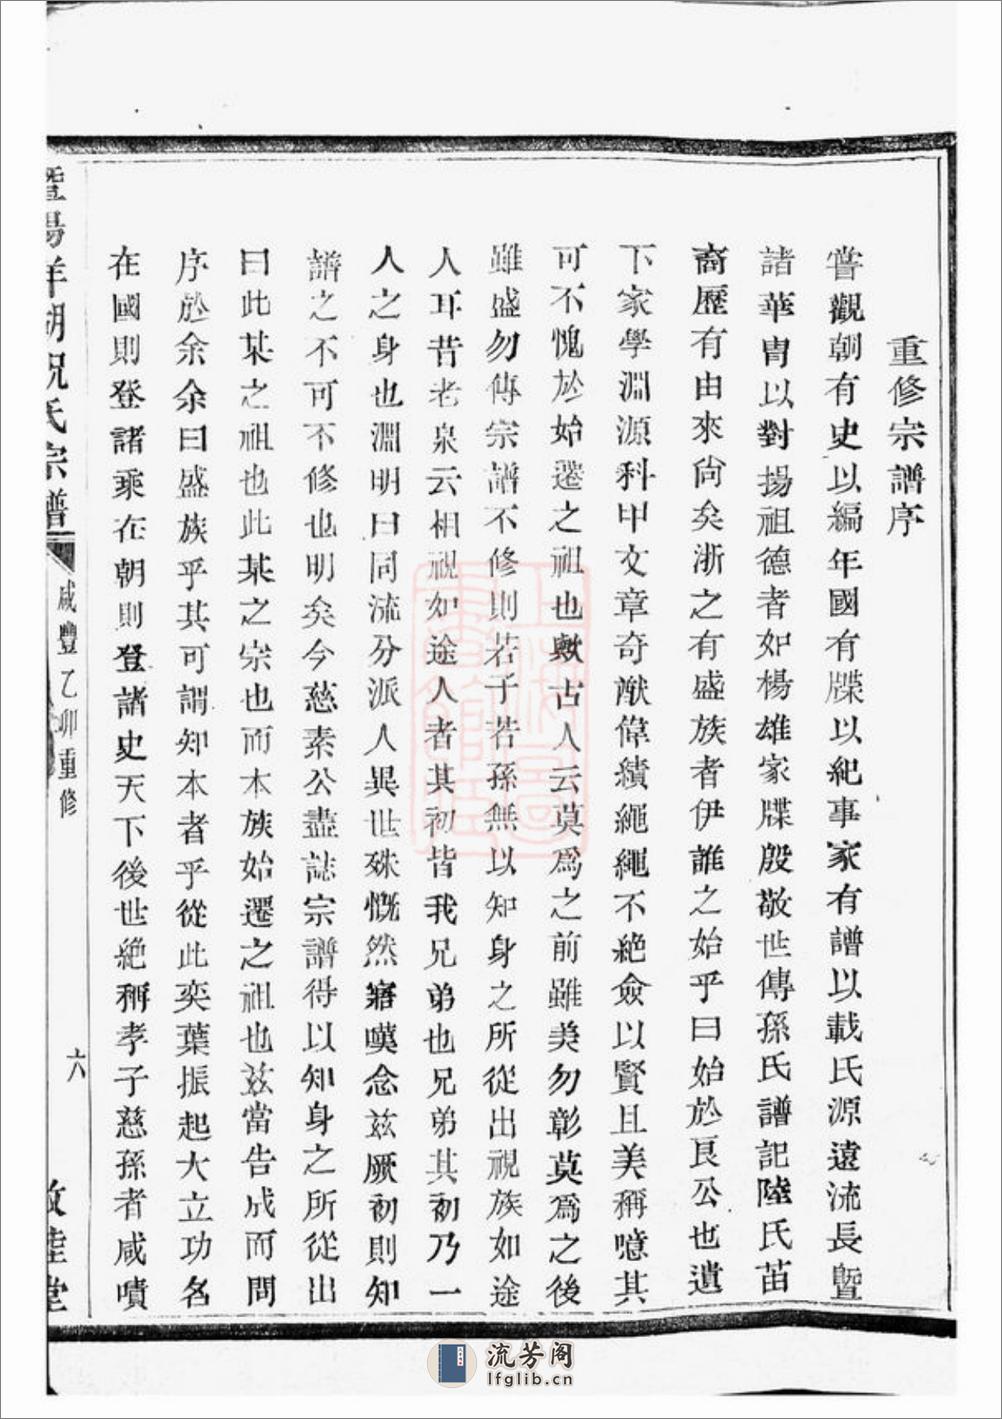 重修宗譜序
嘗觀朝有史以編年國有牒以紀事家有譜以載氏源遠流長曁
諸華胄以對揚祖德者如楊雄家牒殷敬世傳孫氏譜記陸氏苗
裔歷有由來尙矣浙之有盛族者伊誰之始乎曰始於良公也遺
下家學淵源科甲文章奇猷偉績繩繩不絶僉以賢且美稱噫其
可不愧於始遷之祖也歟古人云莫爲之前雖美勿彰莫爲之後
雖盛勿傳宗譜不修則若子若孫無以知身之所從出視族如途
人耳昔老泉云相視如途人者其初皆我兄弟也兄弟其初乃一
人之身也淵明曰同流分派人異世殊慨然寤嘆念玆厥初則知
譜之不可不修也明矣今慈素公盡誌宗譜得以知身之所從出
曰此某之祖也此某之宗也而本族始遷之祖也玆當告成而問
序於余余曰盛族乎其可謂知本者乎從此奕葉振起大立功名
在國則登諸乘在朝則登諸史天下後世絶稱孝子慈孫者咸嘖
暨陽祥湖祝氏宗譜
咸豐乙卯重修
六
敦睦堂
流芳阁
lfglib.cn